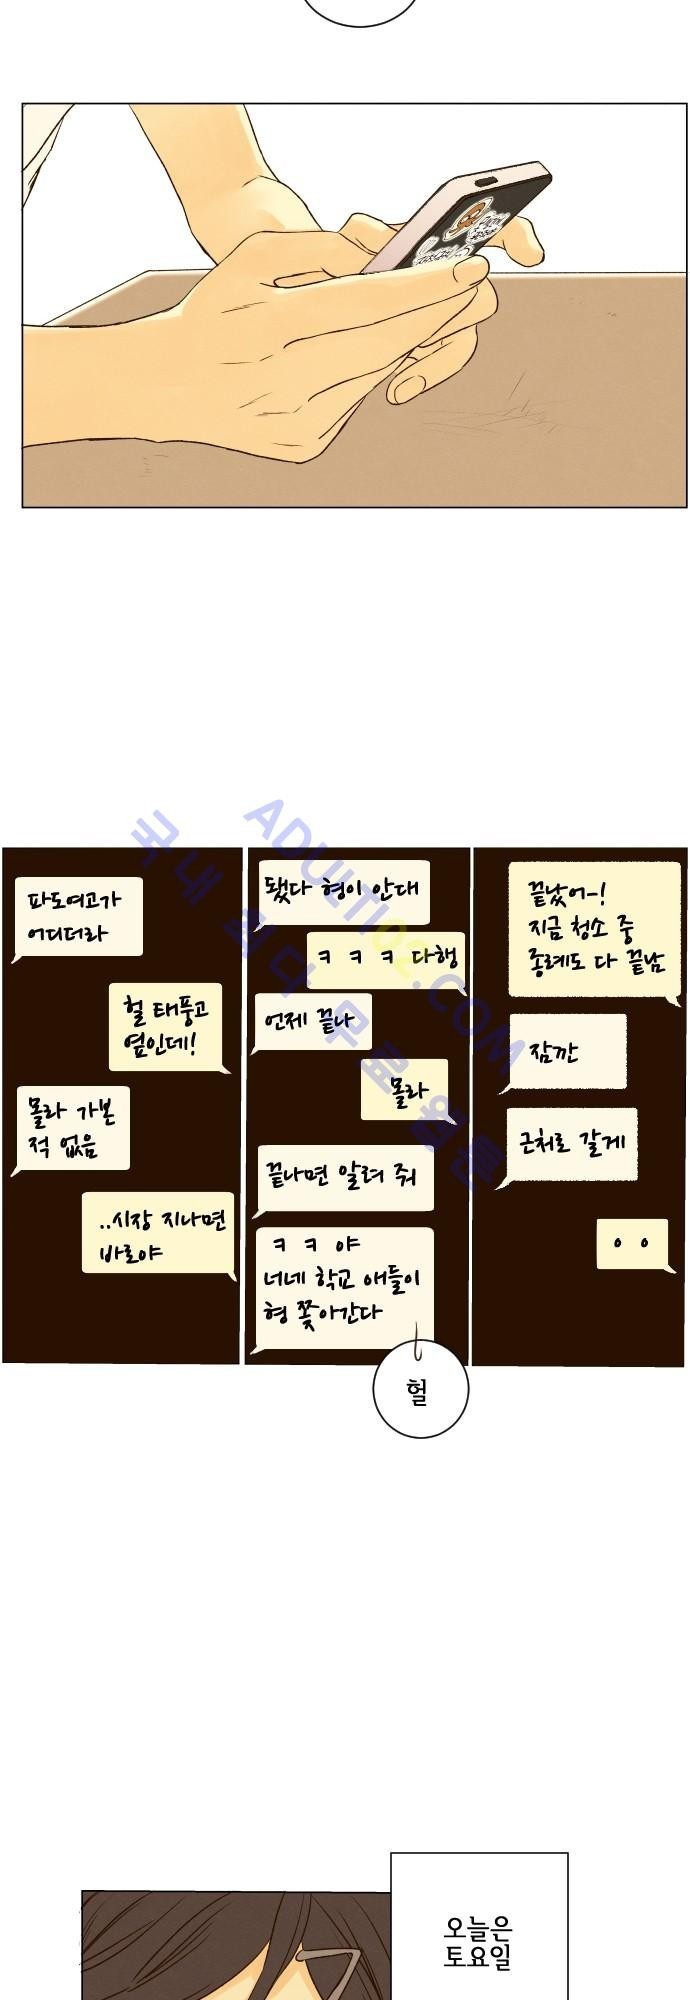 파도여고가
어디더라
헐 태풍고
옆인데!
몰라 가본
적 없음
..시장 지나면
바로야
됐다 형이 안대
ㅋ ㅋ ㅋ 다행
언제 끝나
몰라
끝나면 알려 줘
ㅋ ㅋ 야
너네 학교 애들이
형 쫓아간다
헐
끝났어-!
지금 청소 중
종례도 다 끝남
잠깐
근처로 갈게
ㅇ ㅇ
국내 최다 무료 웹툰
ADULTI02.COM
오늘은
토요일